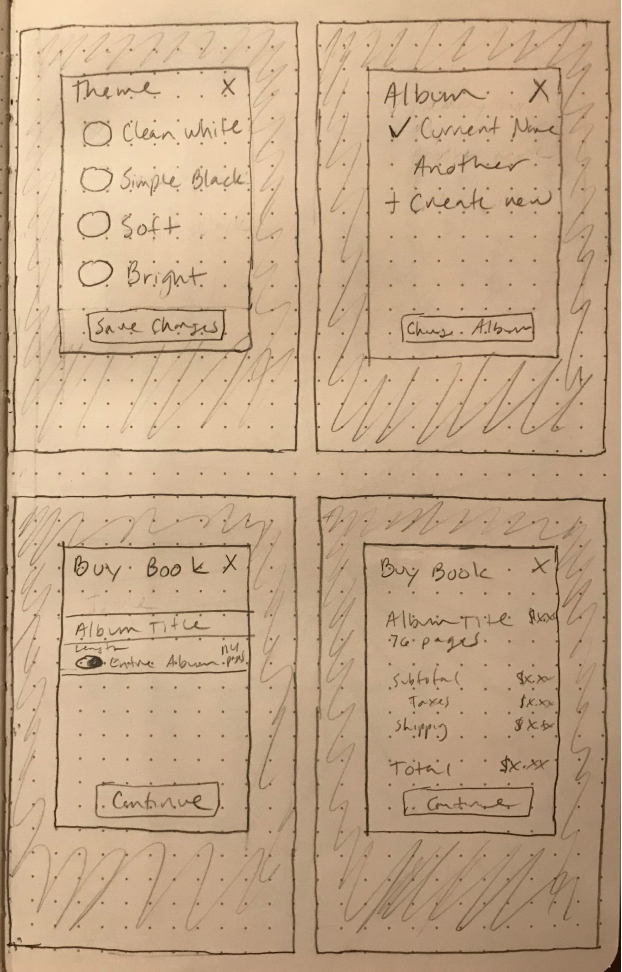 Theme X
Clean White
Simple Black
Soft
Bright
Save Changes
Album X
✓ Current Name
Another
+ Create new
Album
Buy Book X
Album Title
Length
Entire Album
Continue
Buy Book X
Album Title $xxx
76 pages
Subtotal $x.xx
Taxes $x.xx
Shipping $x.xx
Total $x.xx
Continue